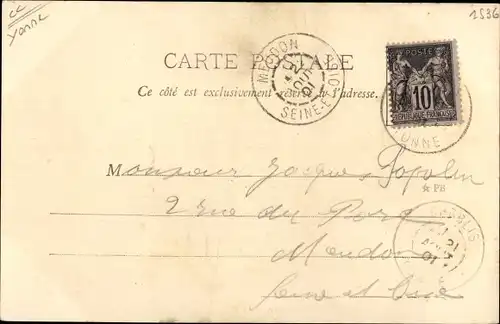 Yonne
1536
CARTE POSTALE
Ce côté est exclusivement réservé à l'adresse.
MEUDON
SEINE-ET-OISE
POSTE
10
REPUBLIQUE FRANÇAISE
YONNE
Monsieur Jacques
★ PB
2 rue du Port
Meudon
Seine et Oise
CHABLIS
21
01